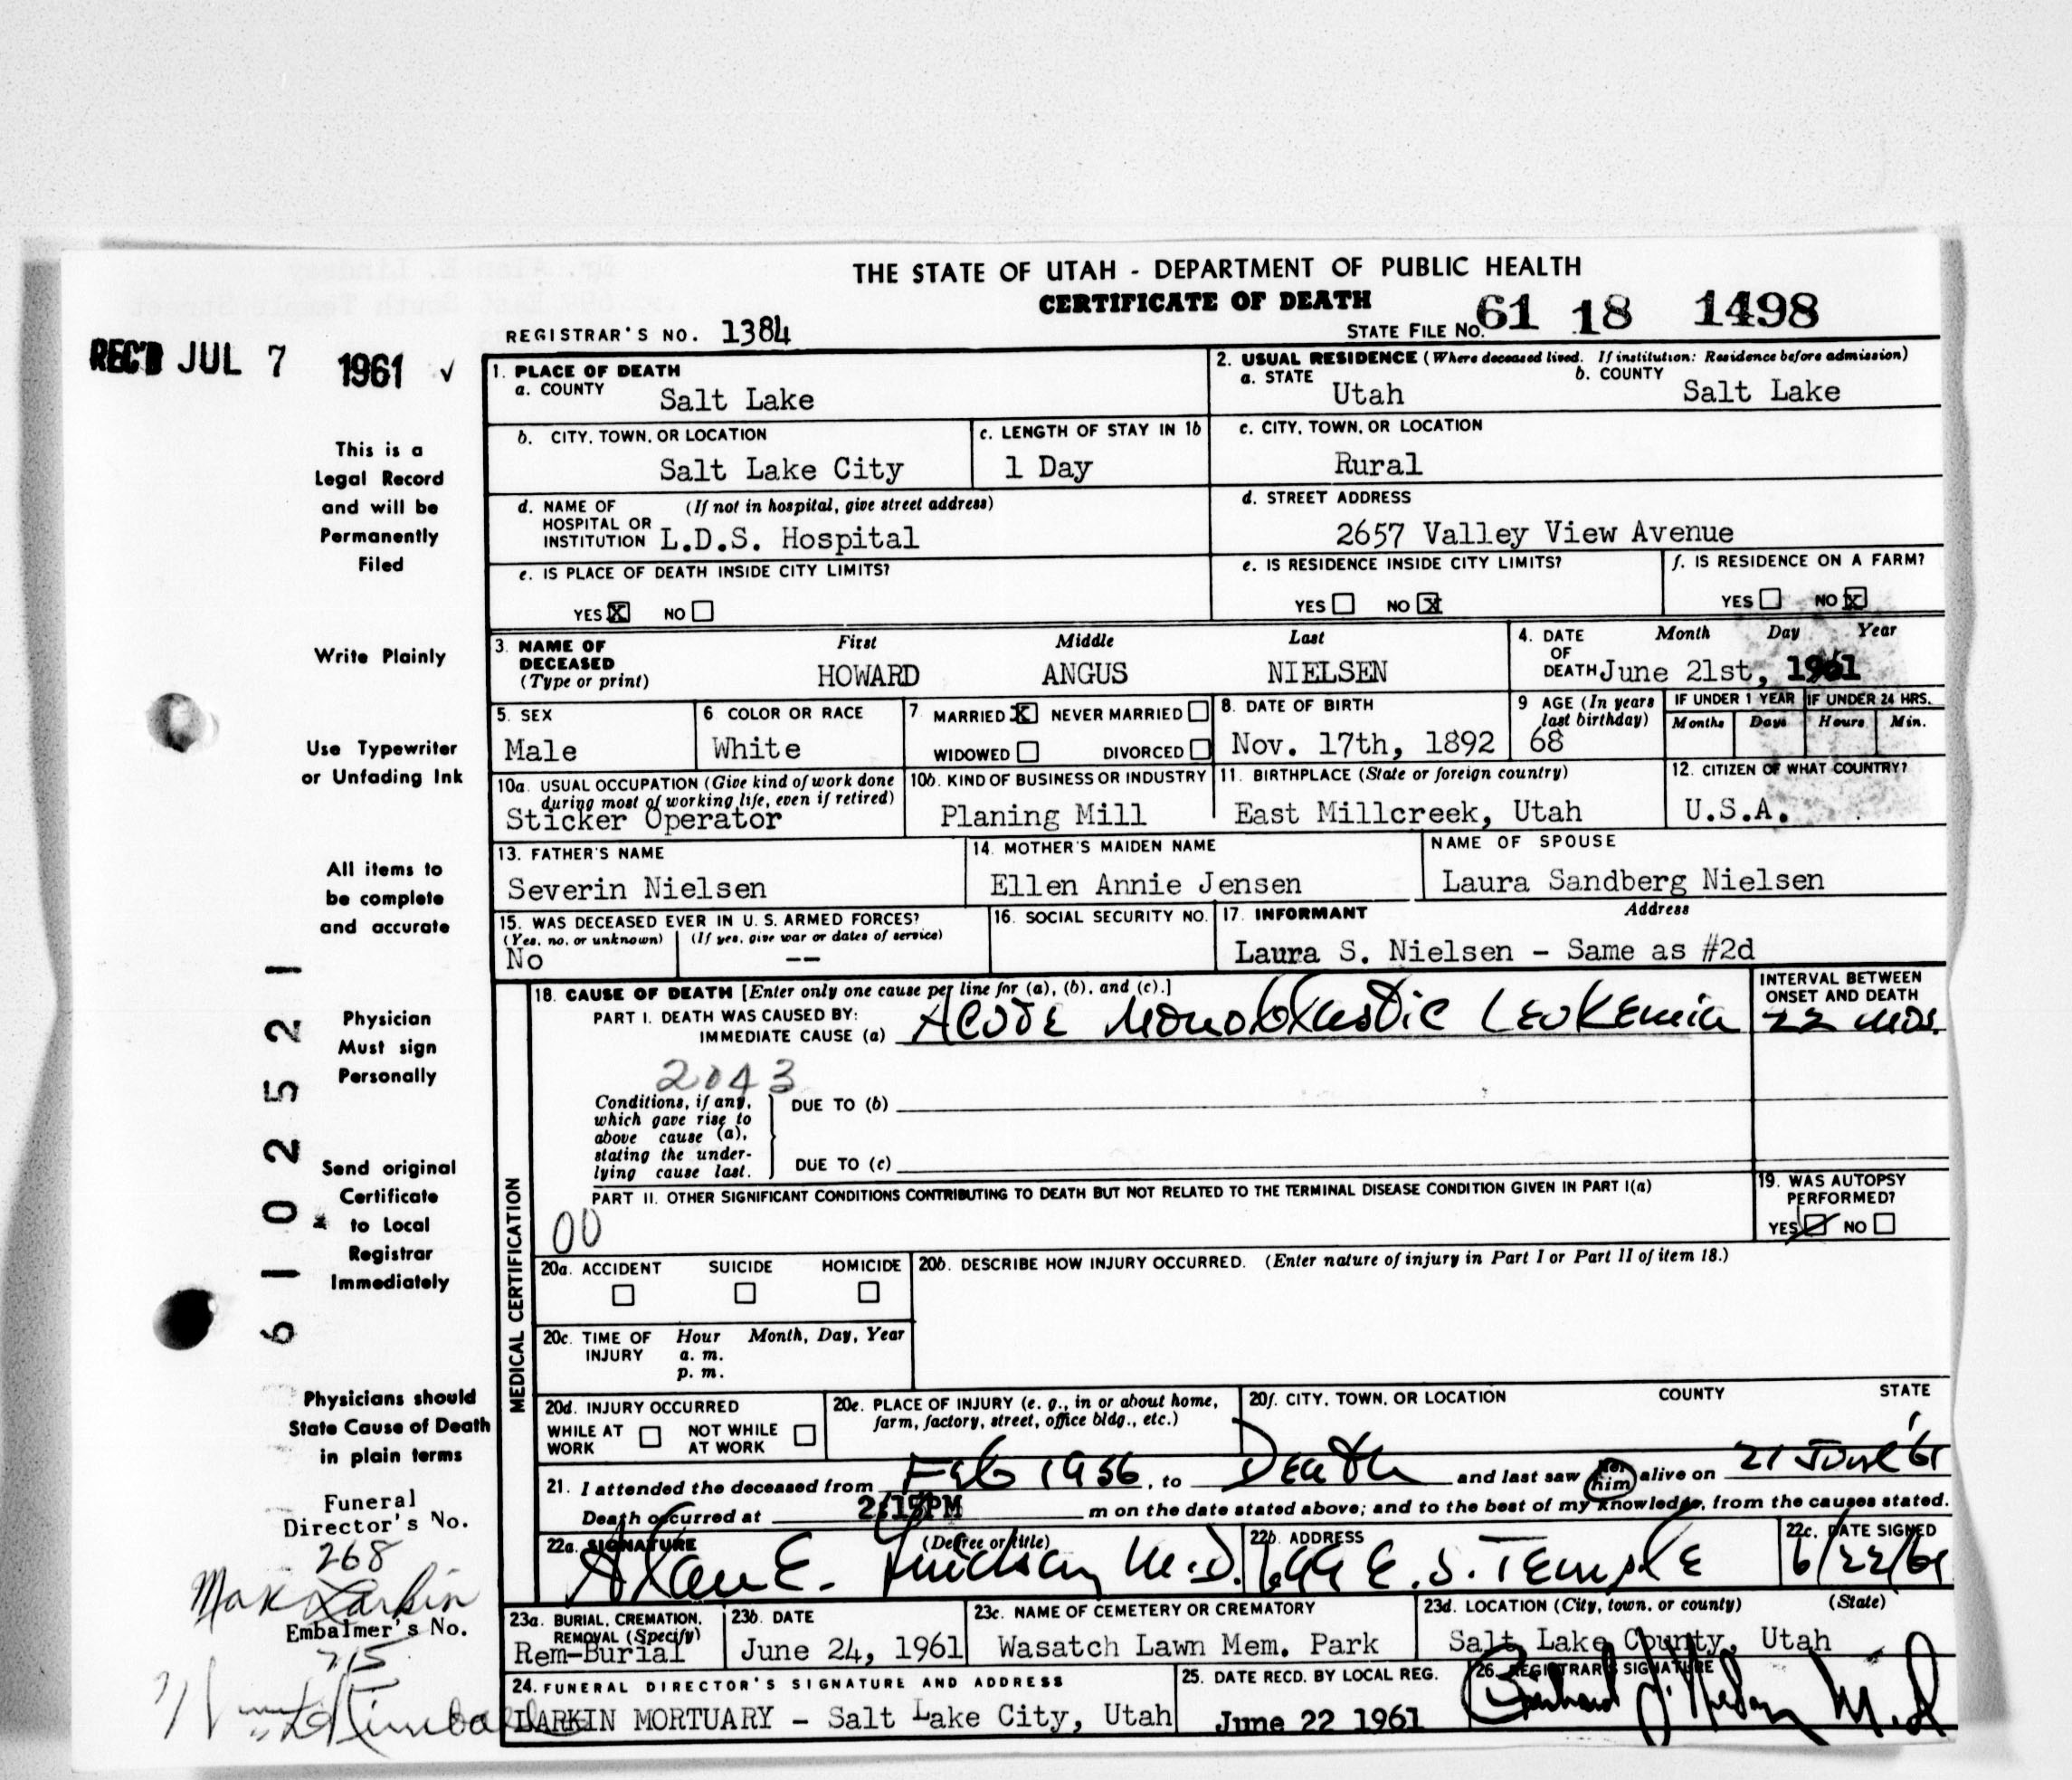 THE STATE OF UTAH - DEPARTMENT OF PUBLIC HEALTH
CERTIFICATE OF DEATH
REGISTRAR'S NO. 1384
STATE FILE NO. 61 18 1498
REC'D JUL 7 1961 ✓
This is a
Legal Record
and will be
Permanently
Filed
Write Plainly
Use Typewriter
or Unfading Ink
All items to
be complete
and accurate
Physician
Must sign
Personally
Send original
Certificate
to Local
Registrar
Immediately
Physicians should
State Cause of Death
in plain terms
Funeral
Director's No.
268
Max Larkin
Embalmer's No.
715
6102521
1. PLACE OF DEATH
a. COUNTY Salt Lake
2. USUAL RESIDENCE (Where deceased lived. If institution: Residence before admission)
a. STATE Utah b. COUNTY Salt Lake
b. CITY, TOWN, OR LOCATION Salt Lake City
c. LENGTH OF STAY IN 1b 1 Day
c. CITY, TOWN, OR LOCATION Rural
d. NAME OF HOSPITAL OR INSTITUTION (If not in hospital, give street address) L.D.S. Hospital
d. STREET ADDRESS 2657 Valley View Avenue
e. IS PLACE OF DEATH INSIDE CITY LIMITS?
YES X NO
e. IS RESIDENCE INSIDE CITY LIMITS?
YES NO X
f. IS RESIDENCE ON A FARM?
YES NO X
3. NAME OF DECEASED (Type or print) First Middle Last
HOWARD ANGUS NIELSEN
4. DATE OF DEATH Month Day Year
June 21st, 1961
5. SEX Male
6 COLOR OR RACE White
7 MARRIED X NEVER MARRIED
WIDOWED DIVORCED
8. DATE OF BIRTH Nov. 17th, 1892
9 AGE (In years last birthday) 68
IF UNDER 1 YEAR Months Days
IF UNDER 24 HRS. Hours Min.
10a. USUAL OCCUPATION (Give kind of work done during most of working life, even if retired) Sticker Operator
10b. KIND OF BUSINESS OR INDUSTRY Planing Mill
11. BIRTHPLACE (State or foreign country) East Millcreek, Utah
12. CITIZEN OF WHAT COUNTRY? U.S.A.
13. FATHER'S NAME Severin Nielsen
14. MOTHER'S MAIDEN NAME Ellen Annie Jensen
NAME OF SPOUSE Laura Sandberg Nielsen
15. WAS DECEASED EVER IN U. S. ARMED FORCES?
(Yes, no, or unknown) No (If yes, give war or dates of service) --
16. SOCIAL SECURITY NO.
17. INFORMANT Address
Laura S. Nielsen - Same as #2d
MEDICAL CERTIFICATION
18. CAUSE OF DEATH [Enter only one cause per line for (a), (b), and (c).]
PART I. DEATH WAS CAUSED BY:
IMMEDIATE CAUSE (a) Acute Monoblastic Leukemia
INTERVAL BETWEEN ONSET AND DEATH
22 mos.
2043
Conditions, if any, which gave rise to above cause (a), stating the underlying cause last.
DUE TO (b)
DUE TO (c)
PART II. OTHER SIGNIFICANT CONDITIONS CONTRIBUTING TO DEATH BUT NOT RELATED TO THE TERMINAL DISEASE CONDITION GIVEN IN PART I(a)
00
19. WAS AUTOPSY PERFORMED?
YES NO
20a. ACCIDENT SUICIDE HOMICIDE
20b. DESCRIBE HOW INJURY OCCURRED. (Enter nature of injury in Part I or Part II of item 18.)
20c. TIME OF INJURY Hour Month, Day, Year
a. m.
p. m.
20d. INJURY OCCURRED
WHILE AT WORK NOT WHILE AT WORK
20e. PLACE OF INJURY (e. g., in or about home, farm, factory, street, office bldg., etc.)
20f. CITY, TOWN, OR LOCATION COUNTY STATE
21. I attended the deceased from Feb 1956, to Death and last saw her him alive on 21 June '61
Death occurred at 2:15PM m on the date stated above; and to the best of my knowledge, from the causes stated.
22a. SIGNATURE (Degree or title) Alan E. Lindsay M.D.
22b. ADDRESS 699 E. S. Temple
22c. DATE SIGNED 6/22/61
23a. BURIAL, CREMATION, REMOVAL (Specify) Rem-Burial
23b. DATE June 24, 1961
23c. NAME OF CEMETERY OR CREMATORY Wasatch Lawn Mem. Park
23d. LOCATION (City, town, or county) (State) Salt Lake County, Utah
24. FUNERAL DIRECTOR'S SIGNATURE AND ADDRESS
LARKIN MORTUARY - Salt Lake City, Utah
25. DATE RECD. BY LOCAL REG. June 22 1961
26. REGISTRAR'S SIGNATURE